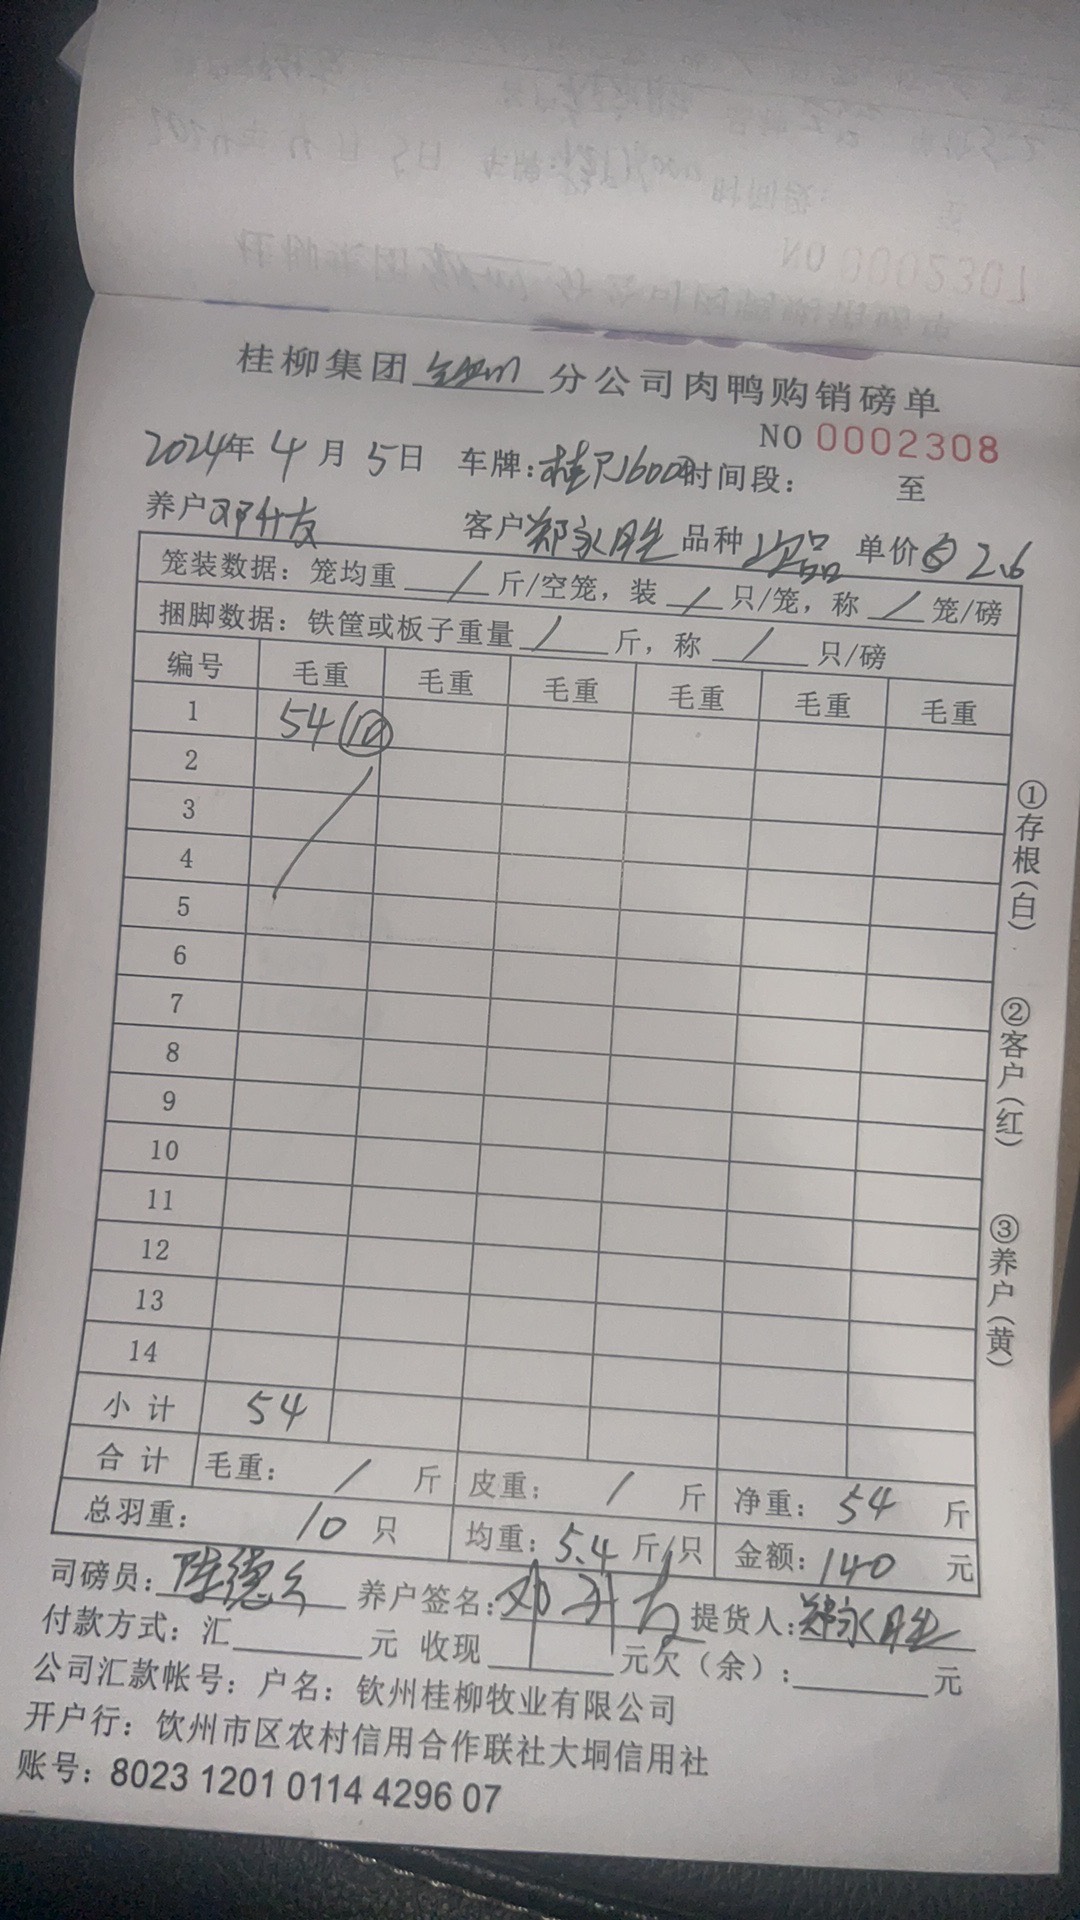 桂柳集团 钦州 分公司肉鸭购销磅单
NO 0002308
2024年 4 月 5日 车牌: 时间段: 至
养户 邓升友 客户 郑永胜 品种 次品 单价 2.6
笼装数据：笼均重 / 斤/空笼，装 / 只/笼，称 / 笼/磅
捆脚数据：铁筐或板子重量 / 斤，称 / 只/磅
编号 毛重 毛重 毛重 毛重 毛重 毛重
1 54 (10)
2
3
4
5
6
7
8
9
10
11
12
13
14
小计 54
合计 毛重： / 斤 皮重： / 斤 净重： 54 斤
总羽重： 10 只 均重：5.4 斤/只 金额：140 元
司磅员: 陈德 养户签名: 邓升友 提货人: 郑永胜
付款方式：汇 元 收现 元欠（余）: 元
公司汇款帐号：户名：钦州桂柳牧业有限公司
开户行：饮州市区农村信用合作联社大垌信用社
账号：8023 1201 0114 4296 07
①存根(白)
②客户(红)
③养户(黄)
NO 0002307